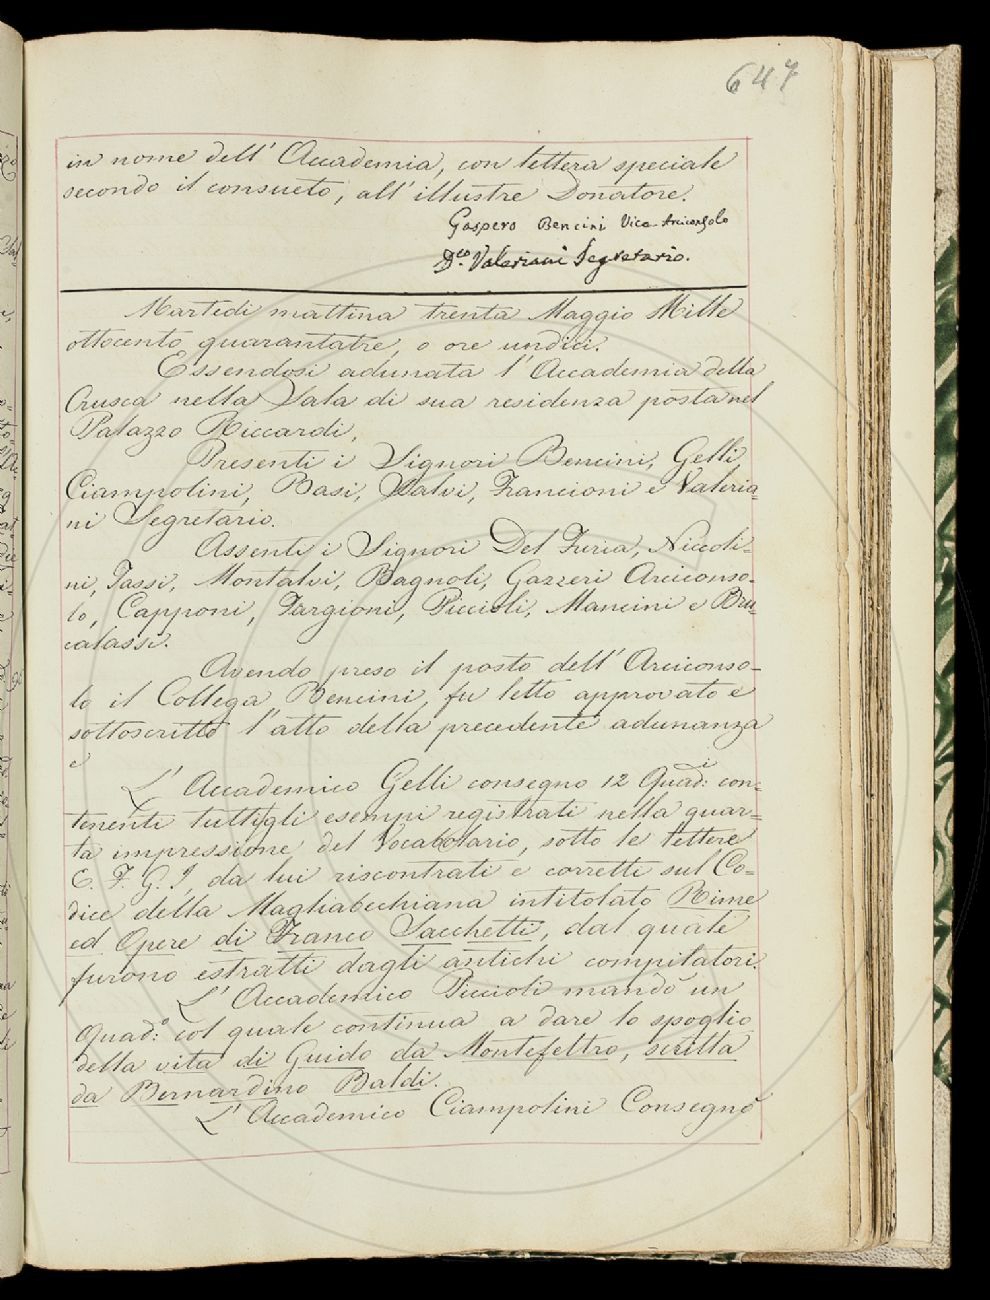 647
in nome dell' Accademia, con lettera speciale
secondo il consueto, all' illustre Donatore.
Gaspero Bencini Vice Arciconsolo
D.co Valeriani Segretario.
Martedi mattina trenta Maggio Mille
ottocento quarantatre, o ore undici.
Essendosi adunata l' Accademia della
Crusca nella Sala di sua residenza posta nel
Palazzo Riccardi,
Presenti i Signori Bencini, Gelli
Ciampolini, Basi, Salvi, Francioni e Valeria=
ni Segretario.
Assenti i Signori Del Furia, Niccoli=
ni, Tassi, Montalvi, Bagnoli, Gazzeri Arciconso-
lo, Capponi, Targioni, Piccioli, Mancini e Bru-
calassi.
Avendo preso il posto dell' Arciconso-
lo il Collega Bencini fu letto approvato e
sottoscritto l' atto della precedente adunanza
e
L' Accademico Gelli consegno 12 Quad:i con=
tenenti tutti gli esempi registrati nella quar=
ta impressione del Vocabolario, sotto le lettere
E. F. G. I, da lui riscontrati e corretti sul Co=
dice della Magliabechiana intitolato Rime
ed Opere di Franco Sacchetti, dal quale
furono estratti dagli antichi compilatori.
L' Accademico Piccioli mandò un
Quad:o col quale continua a dare lo spoglio
della vita di Guido da Montefeltro, scritta
da Bernardino Baldi.
L' Accademico Ciampolini Consegnò